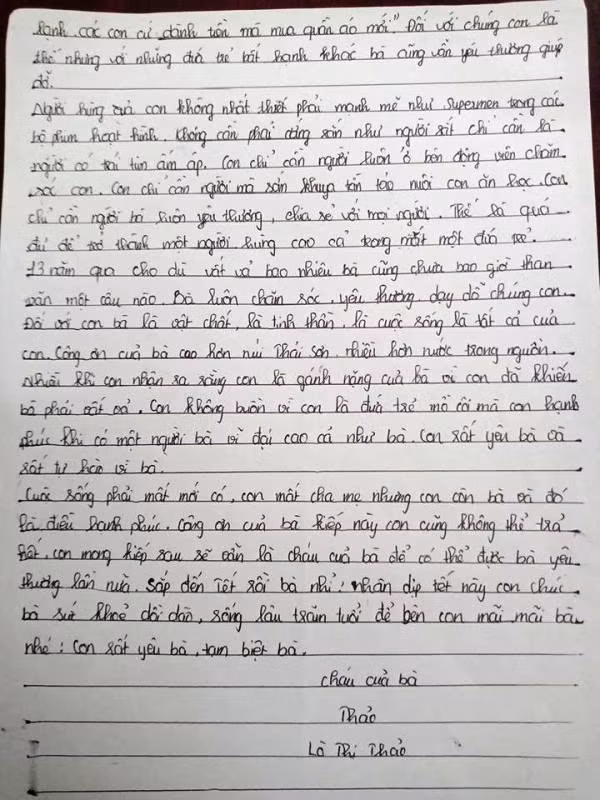 lạnh các con cứ dành tiền mà mua quần áo mới". Đối với chúng con là
thế nhưng với những đứa trẻ bất hạnh khác bà cũng vẫn yêu thương giúp
đỡ.
Người hùng của con không nhất thiết phải mạnh mẽ như Supermen trong các
bộ phim hoạt hình. Không cần phải cứng rắn như người sắt chỉ cần là
người có trái tim ấm áp. Con chỉ cần người luôn ở bên động viên chăm
sóc con. Con chỉ cần người mà sớn khuya tần tảo nuôi con ăn học. Con
chỉ cần người bà luôn yêu thương, chia sẻ với mọi người. Thế là quá
đủ để trở thành một người hùng cao cả trong mắt một đứa trẻ.
13 năm qua cho dù vất vả bao nhiêu bà cũng chưa bao giờ than
vãn một câu nào. Bà luôn chăm sóc, yêu thương, dạy dỗ chúng con.
Đối với con bà là vật chất, là tinh thần, là cuộc sống là tất cả của
con. Công ơn của bà cao hơn núi Thái Sơn, nhiều hơn nước trong nguồn.
Nhiều khi con nhận ra rằng con là gánh nặng của bà vì con đã khiến
bà phải vất vả. Con không buồn vì con là đứa trẻ mồ côi mà con hạnh
phúc khi có một người bà vĩ đại cao cả như bà. Con rất yêu bà và
rất tự hào vì bà.
Cuộc sống phải mất mới có, con mất cha mẹ nhưng con còn bà và đó
là điều hạnh phúc. Công ơn của bà kiếp này con cũng không thể trả
hết, con mong kiếp sau sẽ vẫn là cháu của bà để có thể được bà yêu
thương lần nữa. Sắp đến Tết rồi bà nhỉ! nhân dịp tết này con chúc
bà sức khoẻ dồi dào, sống lâu trăm tuổi để bên con mãi mãi bà
nhé! Con rất yêu bà, tạm biệt bà.
cháu của bà
Thảo
Lò Thị Thảo